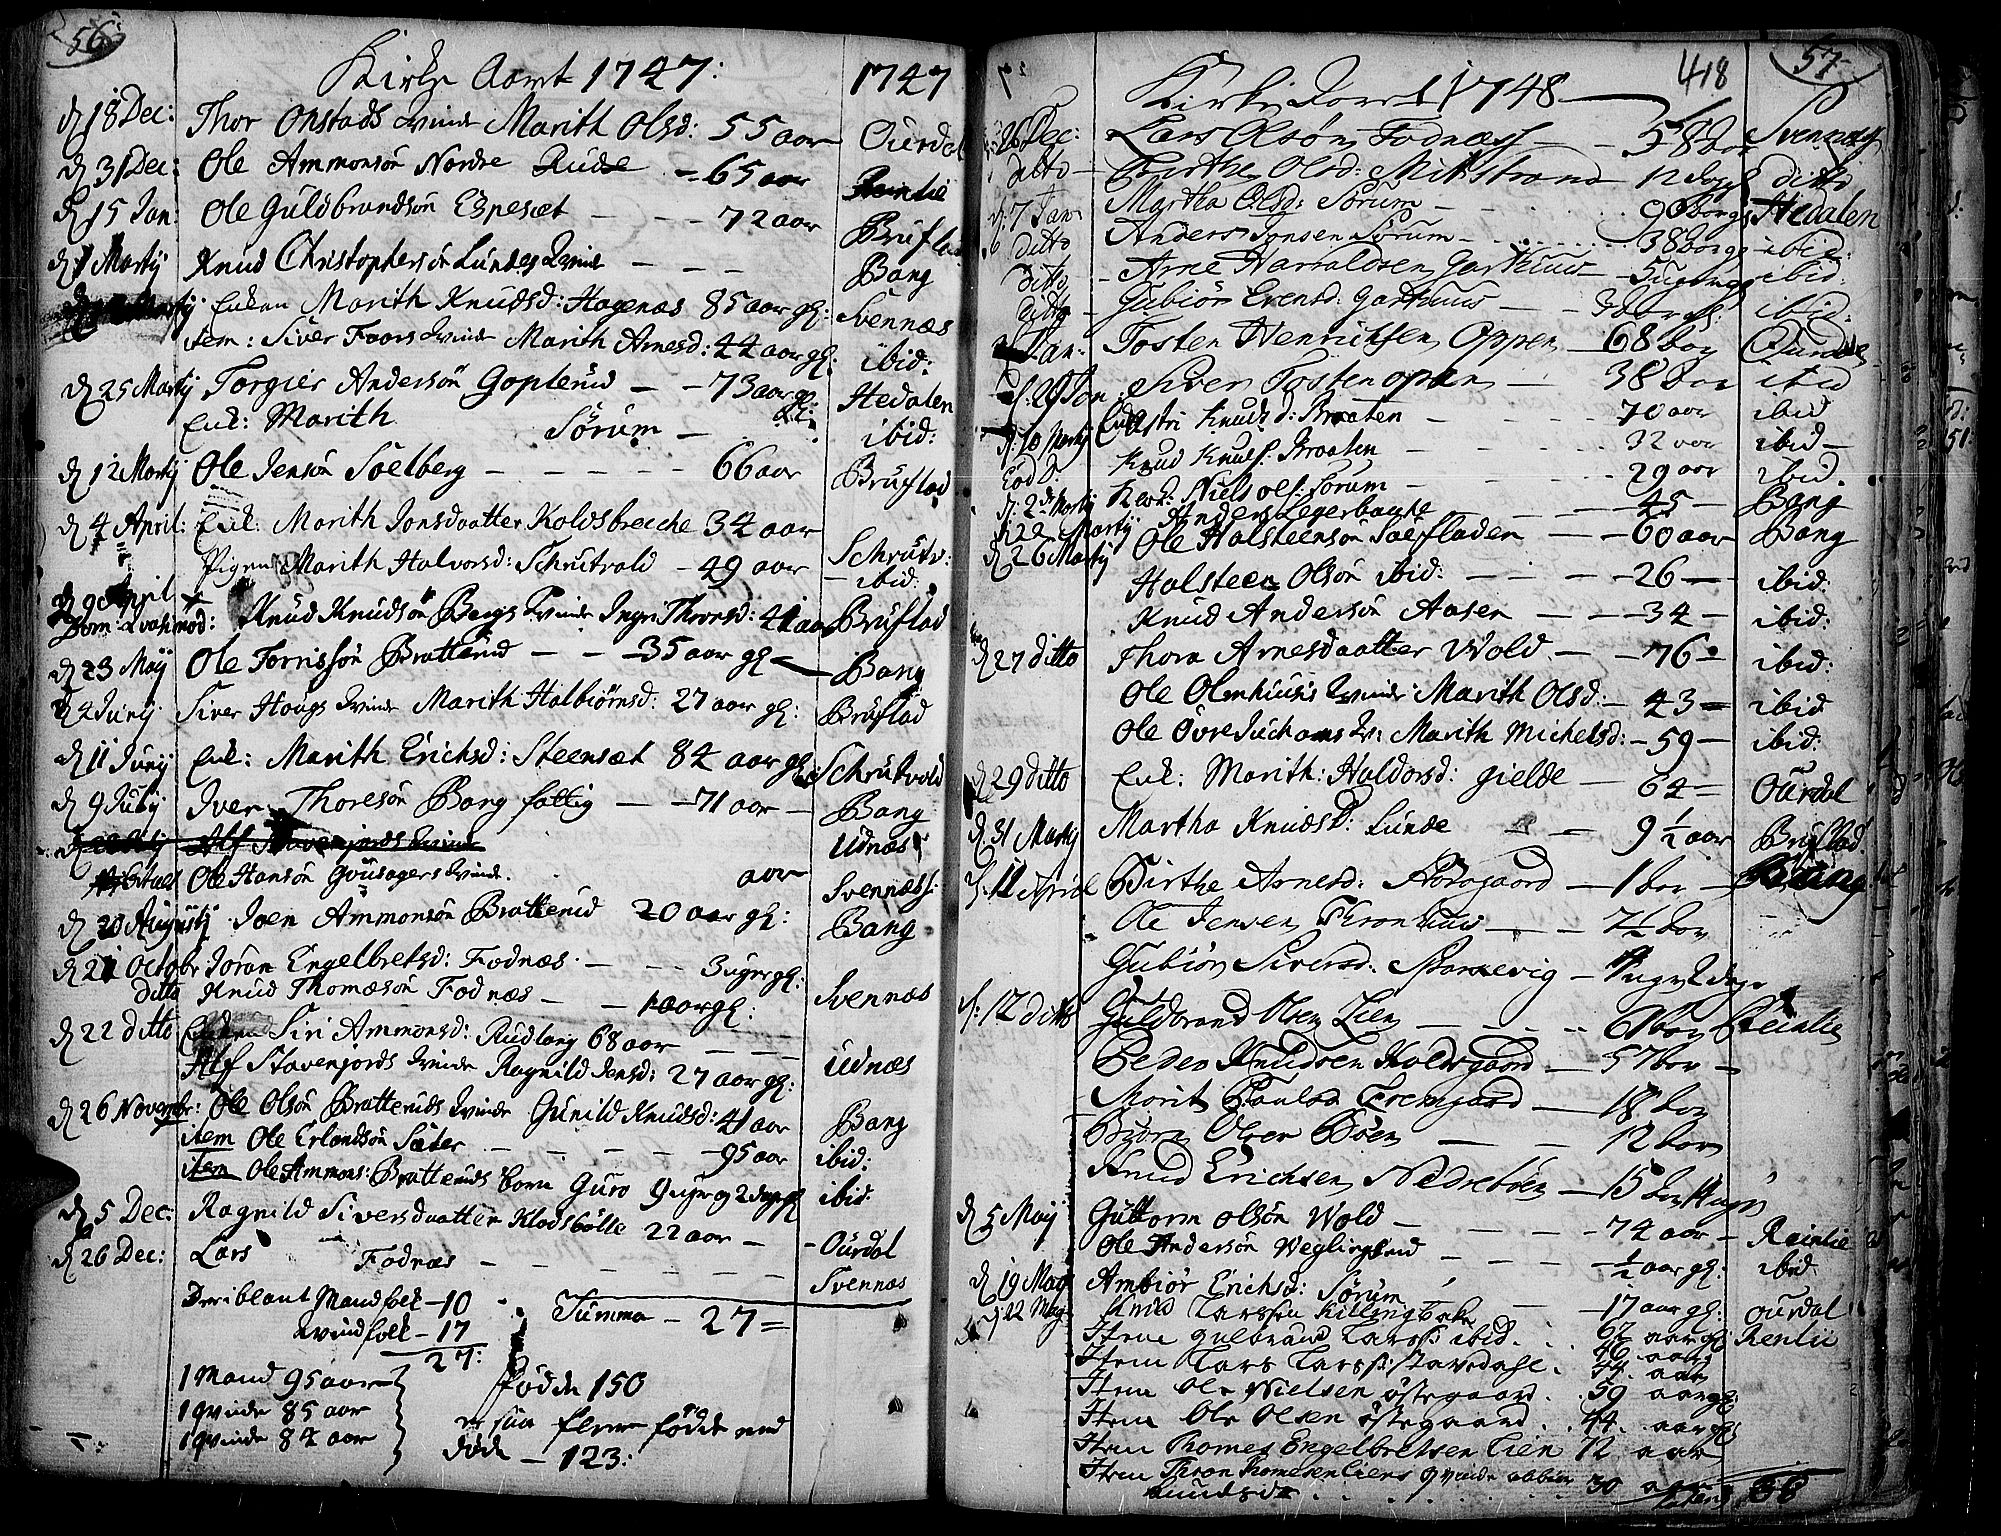 56
Kirke Aaret 1747:
1747
d 18 Dec: Thor Onstads Kvinde Marith Olsd: 55 aar Ourdal
d 31 Dec: Ole Ammonsön Nordre Rude - 65 aar Reinlie
d 15 Jan: Ole Guldbrandsön Espeset - - - 72 aar Bruflad
d 1 Martij Knud Christophersön Lundes Kvinde - - - Bang
Enken Marith Knudsd: Hagenæs 85 aar gl: Svennæs
item: Siver Foars Kvinde Marith Arnesd: 44 aar gl: ibid:
d 25 Martij Torgier Andersön Goplerud - - 73 aar gl: Hedalen
Enk: Marith Sörum - ibid:
d 12 Martij Ole Jensön Soelberg - - - - - 66 aar Bruflad
d 4 April: Enk: Marith Jonsdaatter Koldsbreche 34 aar
Pigen Marith Halvorsd: Schrutvold - 49 aar Schrutv: ibid:
d 9 April
Dom: Qvasimod: Knud Knudsön Bergs Kvinde Ingri Thoresd: 41 aar Bruflad
d 23 Maij Ole Torrissön Bratterud - - - 35 aar gl - Bang
d 4 Junij Siver Hougs Kvinde Marith Halbiörnsd: 27 aar gl: Bruflad
d 11 Junij Enk: Marith Erichsd: Steenset 84 aar gl: Schrutvold
d 9 Julij Iver Thoresön Bang fattig - - 71 aar - Bang
Alf Stavenjords Kvinde Udnæs
Ole Hansön Gousagers Kvinde. aar Svennæs:
d 20 Augustij Joen Ammonsön Bratterud 20 aar gl: Bang
d 21 Octobr Jöran Engelbretsd: Fodnæs - - - 3 uger gl:
ditto Knud Thomæsön Fodnæs - - 1 aar gl: Svennæs
d 22 ditto Enken Siri Ammonsd: Rudlang 68 aar - - -
Alf Stavenjords Kvinde Ragnild Jensd: 27 aar gl: Udnæs
d 26 Novembr: Ole Olsön Bratteruds Kvinde Gunild Knudsd: 41 aar Bang
item Ole Erlandsön Sæter - - - - - 95 aar ibid:
item Ole Ammons: Bratteruds barn Guro 9 uger og 2 dage gl ibid:
d 5 Dec: Ragnild Siversdaatter Klodsbölle 22 aar - - Ourdal
d 26 Dec: Lars Fodnæs - - - - - - Svennæs
Deriblant Mandfolk - 10
Kvindfolk - 17
27:
Summa - 27 =
1 Mand 95 aar
1 qvinde 85 aar
1 qvinde 84 aar
födde 150
er saa flere födde end
döde - 123:
418
57
Kirke Aaret 1748
26 Dec: Lars Olsön Fodnæss - - 58 Aar Svennæs
ditto - Berthe Olsd: Midtstrand - 12 dage ditto
d: 7 Jan Martha Olsd: Sörum - - - 90 Hedalen
ditto Anders Jonsen Sörum - - - 38 ibid:
ditto - Arne Harraldsen Garthuus - 5 uger ibid:
ditto - Gubiör Evensd: Garthuus - - 3 ibid:
Jan: Tosten Henrichsen Oppen - 68 Aar Ourdal
d. 29 Jan: Siver Tosten oppen - - 38 Aar ibid
d. 10 Martij Enk: Astri Knuds d: Braaten - - - 70 aar ibid
Eod D. Knud Knuds. Braaten - - - 32 aar ibid -
d. 2 dn Martij Niels ols: Sörum - - - 29 aar ibid.
d 22 Martij Anders Legerbakke - - - 45 - Bang
d 26 Martij Ole Halsteensön Sæfladen - - 60 aar Bang
Halsteen Olsön ibid: - - - 26 - ibid:
Knud Andersön Aasen - - 34 - ibid:
d 27 ditto Thora Arnesdaatter Wold - - 76 - ibid:
Ole Olmhuus Kvinde Marith Olsd: - 43 - ibid
Ole Övre Kv: Marith Michelsd: - 59 - ibid:
d 29 ditto Enk: Marith: Haldorsd: gielde - 64 - Ourdal
d 31 Martij Martha Knudsd: Lunde - - 9 ½ aar Bruflad
d: 11 April Birthe Arnesd: - 1 Aar - Bang
Ole Jensen Thronhuus - - - 7½ Aar
Gubiör Siversd: - uger 2 dage
d: 12 ditto Guldbrand Olsen Lien - - - - Aar Reinlie
Peder Knudsen - 57 Aar -
Marit Paulsd - 18 Aar
Björn Olsen Böen - - - 12 Aar
Knud Erichsen Nedreböen - 15
d 5 Maij Guttorm Olsön Wold - - - 74 aar - Reinlie
Ole Andersön - - ½ aar gl: ibid
d 19 Maij Ambiör Erichsd: Sörum - - 17 aar gl: Ourdal
d 22 Maij Knud Larssön 67 aar gl: Renlie
Item Gulbrand Larss: ibid. 46 aar
Item Lars Larss: Stavedahl. 44. aar
Item Ole Nielsen östegaard. 59 aar gl:
Item Ole Olsen östegaard. 44. aar gl:
Item Thomes Engelbretsen Lien 72 aar
Item Thron Thomesen Liens qvinde
Knudsd: . . . . . 30 aar
58